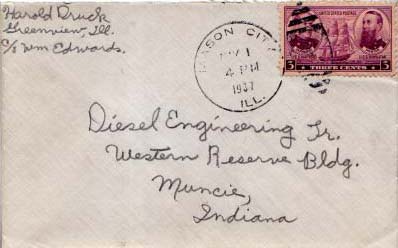 Harold Druck
Greenview, Ill.
c/o Wm Edwards.
MASON CITY
1
4 PM
1937
ILL.
UNITED STATES POSTAGE
3 THREE CENTS 3
Diesel Engineering Tr.
Western Reserve Bldg.
Muncie,
Indiana